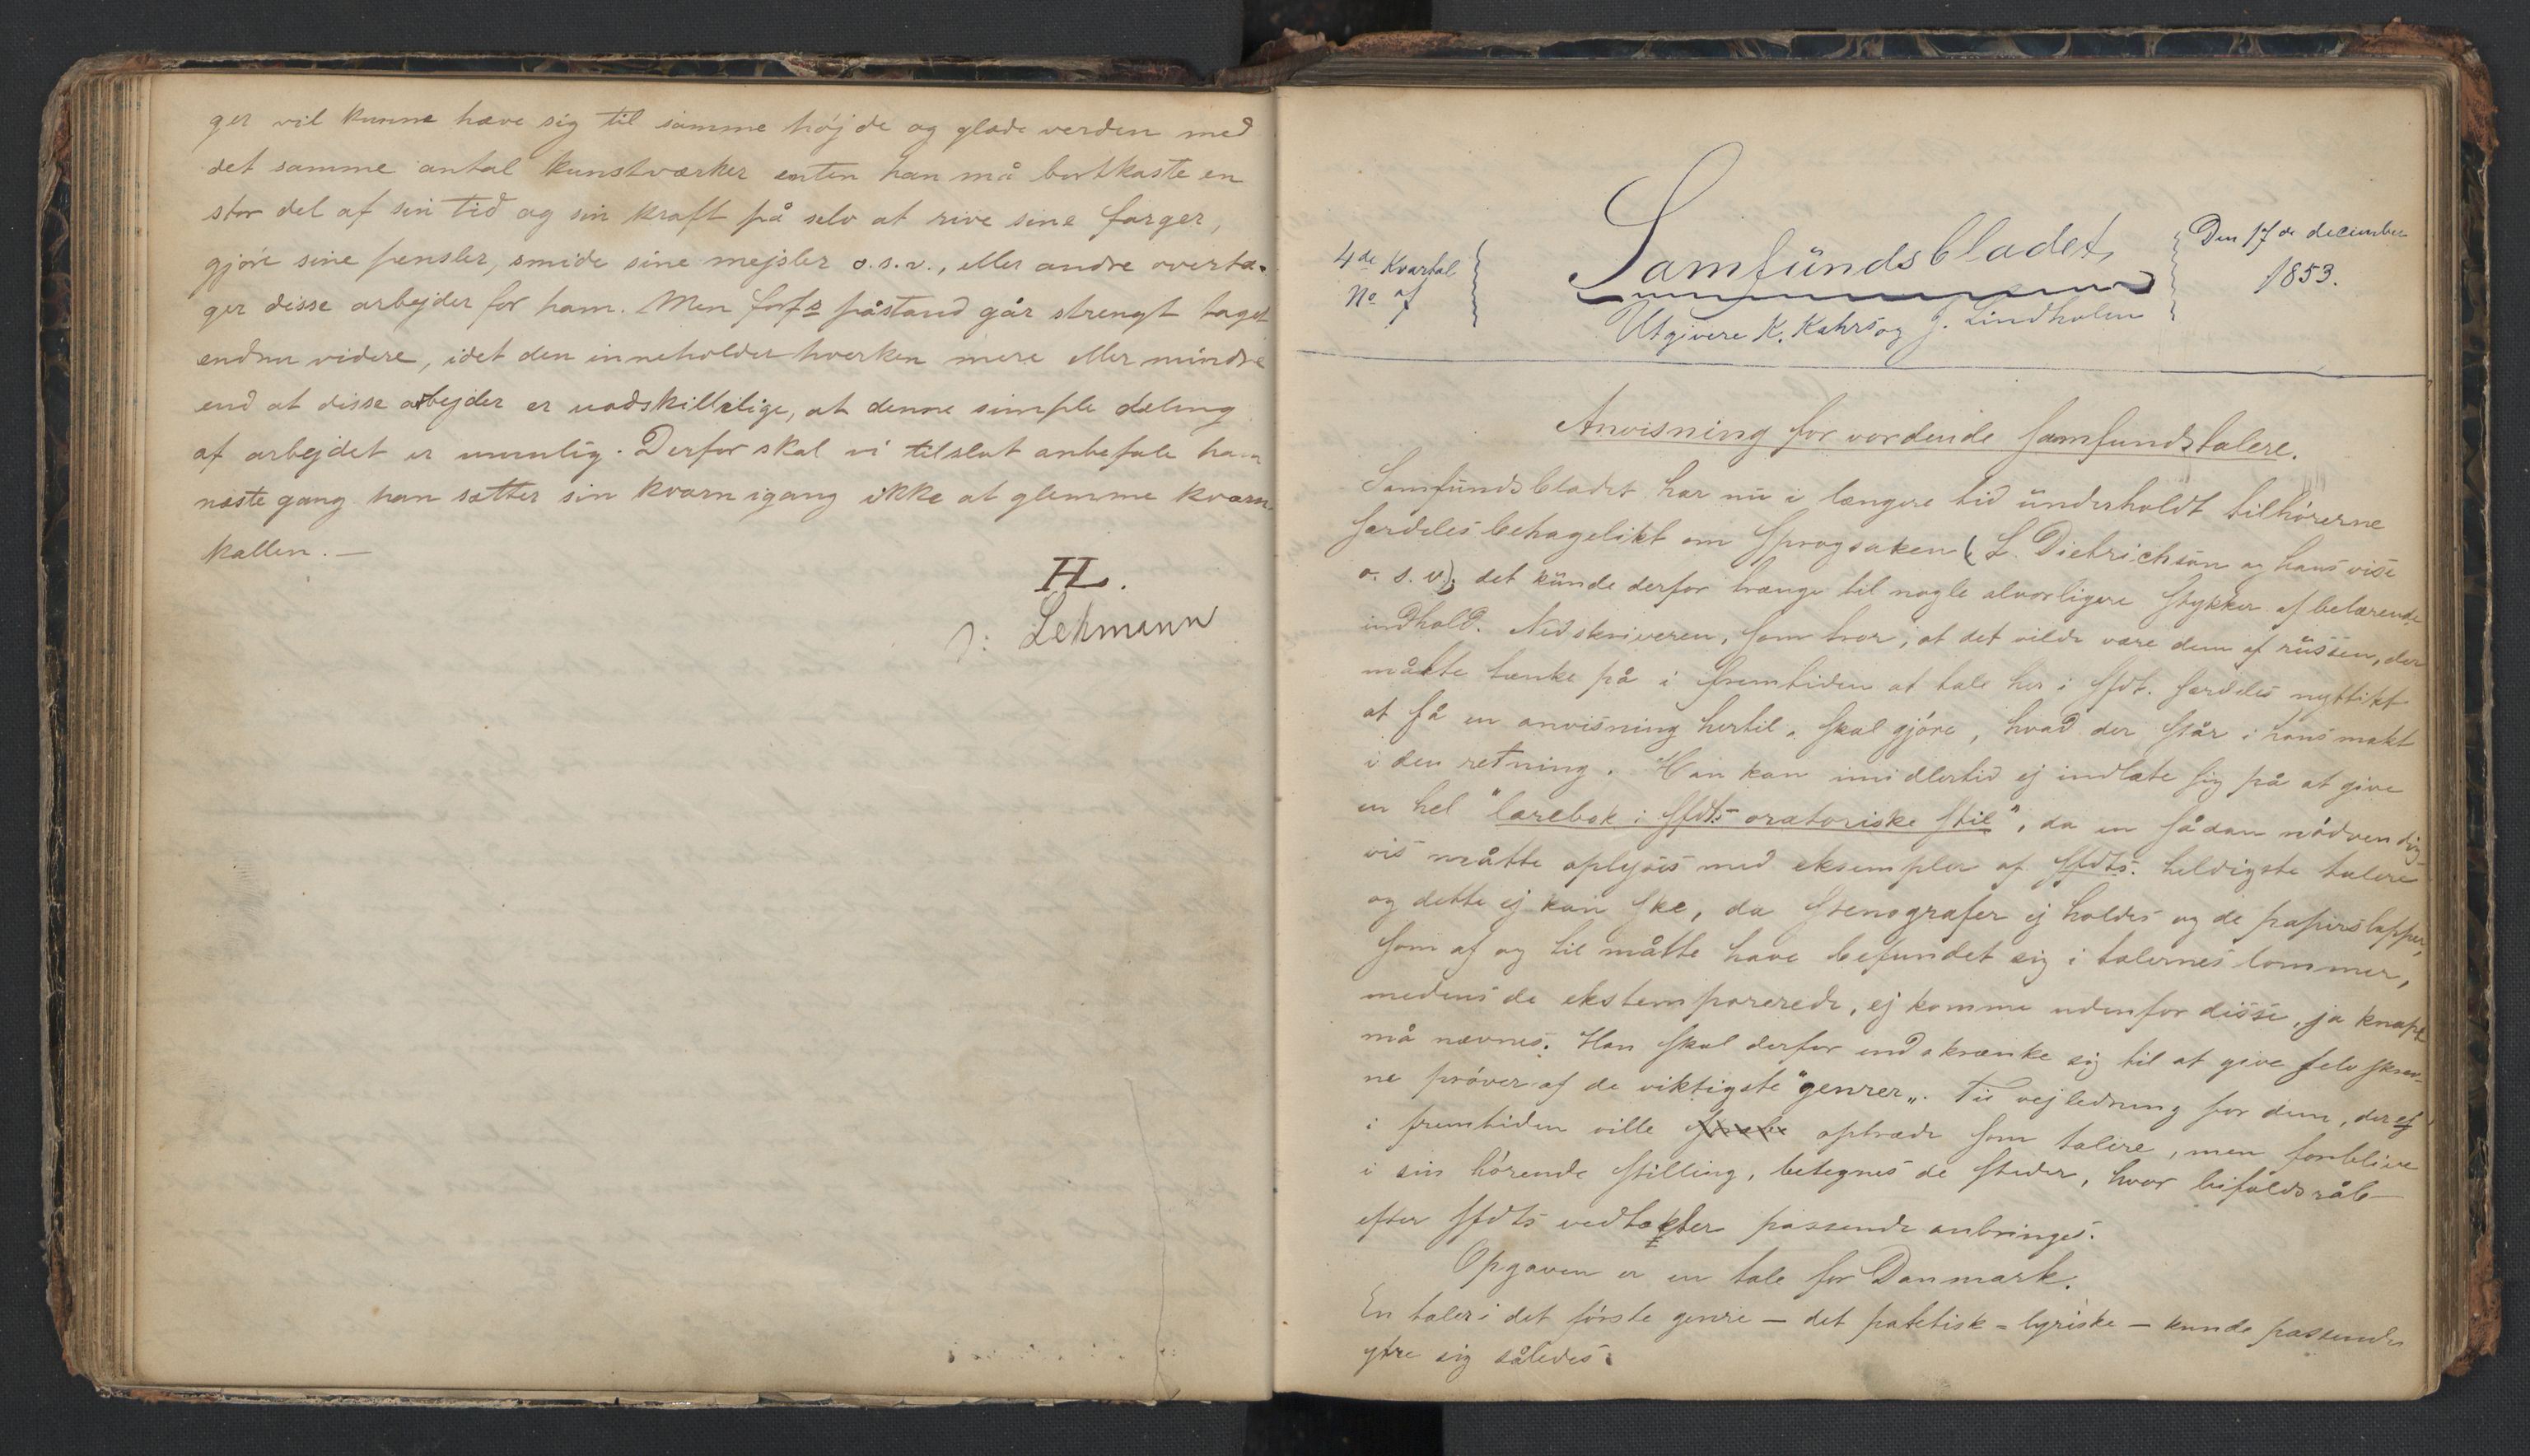 ger vil kunne hæve sig til samme højde og glæde verden med
det samme antal kunstværker enten han må bortkaste en
stor del af sin tid og sin kraft på selv at rive sine farger,
gjøre sine pensler, smide sine mejsler o.s.v., eller andre overta-
ger disse arbejder for ham. Men forfs påstand går strengt taget
endnu videre, idet den inneholder hverken mere eller mindre
end at disse arbejder er uadskillelige, at denne simple deling
af arbejdet er umulig. Derfor skal vi tilslut anbefale ham
næste gang han sætter sin kvarn igang ikke at glemme kvarn-
kallen. —
HL.
ɔ: Lehmann
4de Kvartal
No af
Samfündsbladet
Den 17de december
1853.
Utgivere K. Kahrs og J. Lindholm
Anvisning for vordende samfundstalere.
Samfündsbladet har nü i længere tid ünderholdt tilhörerne
særdeles behagelikt om sprogsaken (L. Dietrichson og hans vise
o. s. v.); det künde derfor trænge til nogle alvorligere stykker af belærende
indhold. Nedskriveren, som tror, at det vilde være dem af rüssen, der
måtte tænke på i fremtiden at tale her i Sfdt. særdeles nyttikt
at få en anvisning hertil, skal gjöre, hvad der står i hans makt
i den retning. Han kan imidlertid ej indlate sig på at give
en hel "lærebok i Sfdts oratoriske stil", da en sådan nödvendig-
vis måtte oplyses med eksempler af Sfdts. heldigste talere
og dette ej kan ske, da stenografer ej holdes og de papirslapper,
som af og til måtte have befundet sig i talernes lommer,
medens de ekstemporerede, ej komme udenfor disse, ja knapt
må nævnes. Han skal derfor indskrænke sig til at give selvskrev-
ne pröver af de viktigste "genrer". Til vejledning for dem, der ej
i fremtiden ville optræde som talere, men forblive
i sin hörende stilling, betegnes de steder, hvor bifaldsråb
efter Sfdts vedtækter passende anbringes.
Opgaven er en tale for Danmark.
En taler i det förste genre — det patetisk-lyriske — kunde passende
ytre sig således: